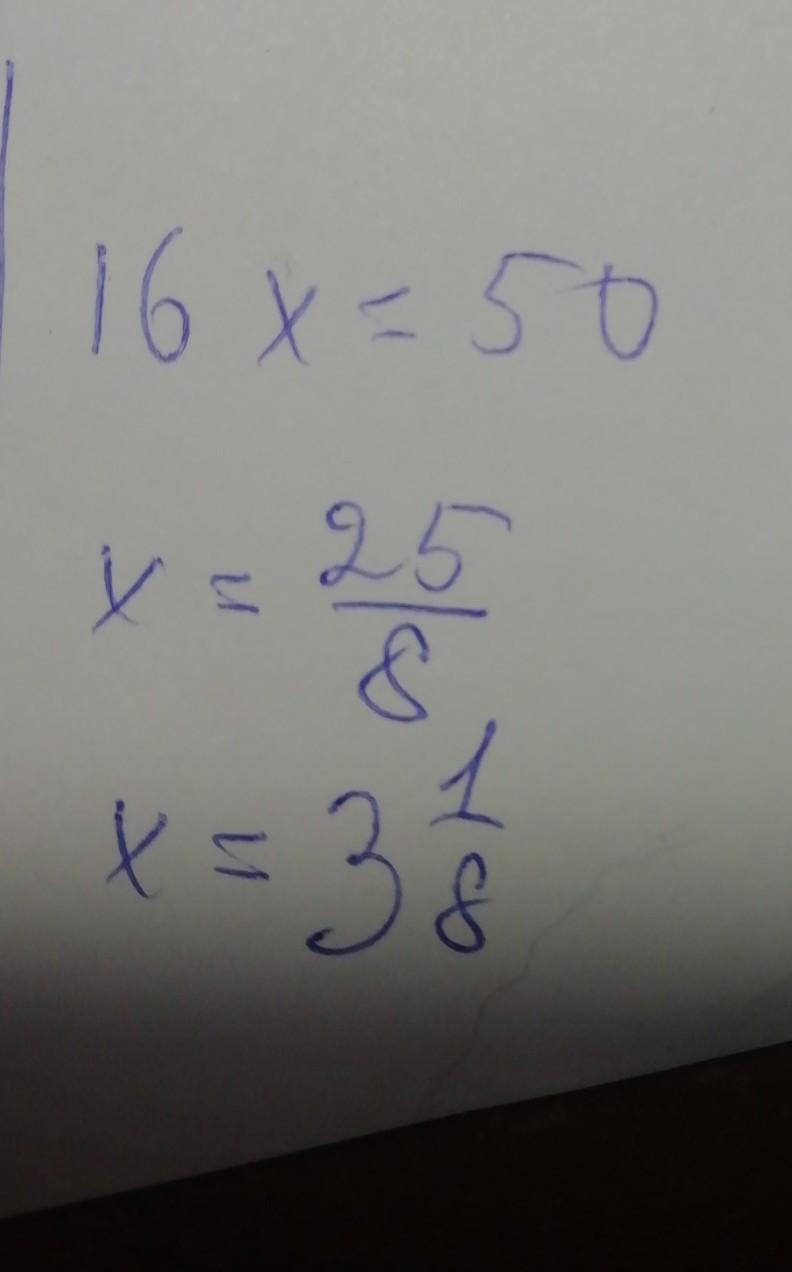 16 x = 50
x = 25/8
x = 3 1/8